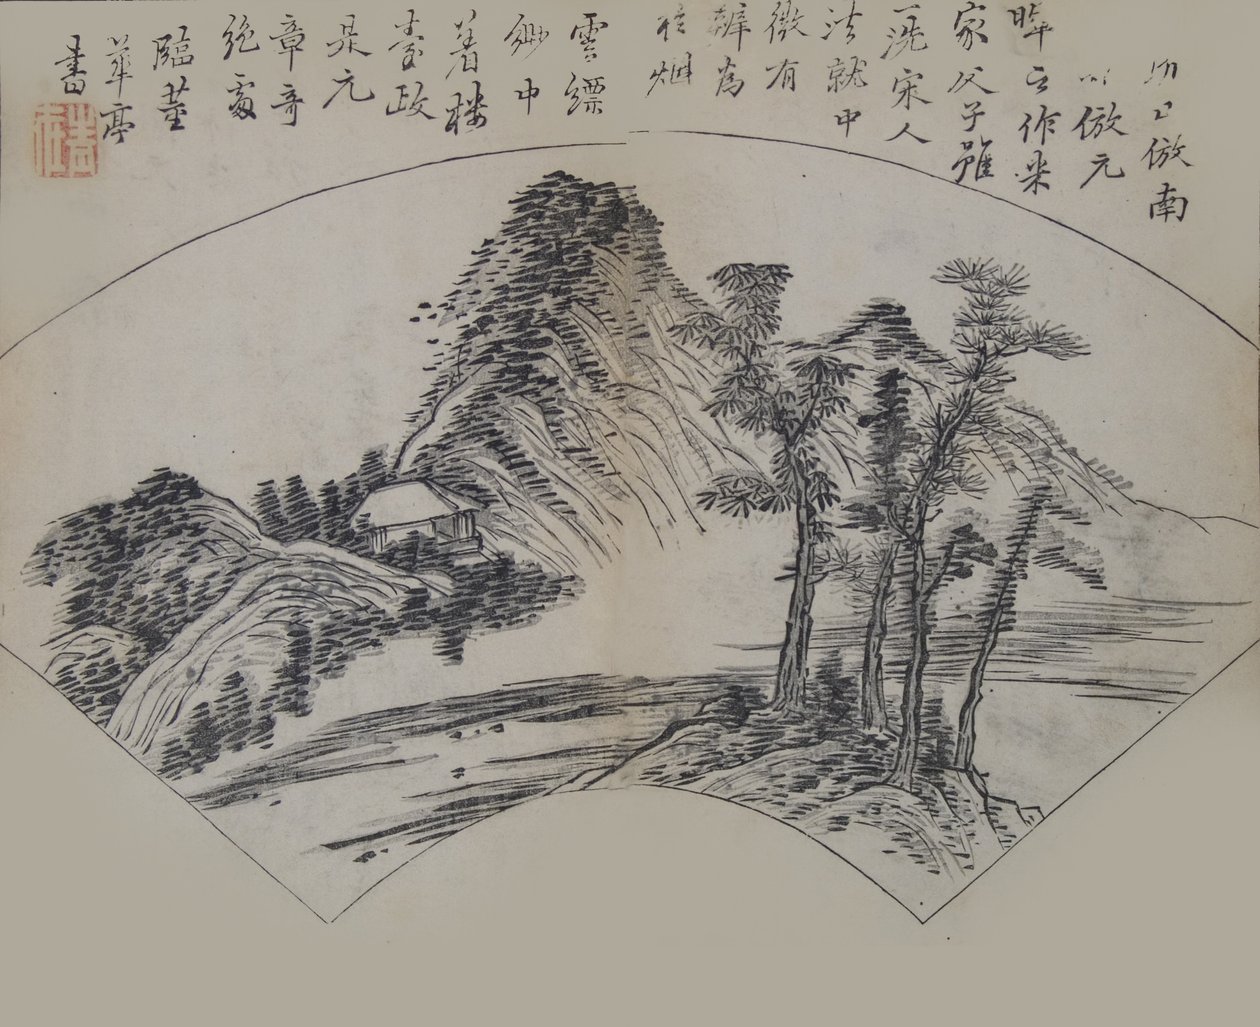 已倣南
以倣元
暉之作米
家父子雖
一洗宋人
法就中
微有
辨為
在烟
雲縹
緲中
着樓
臺政
是元
章奇
絕處
臨董
華亭
書